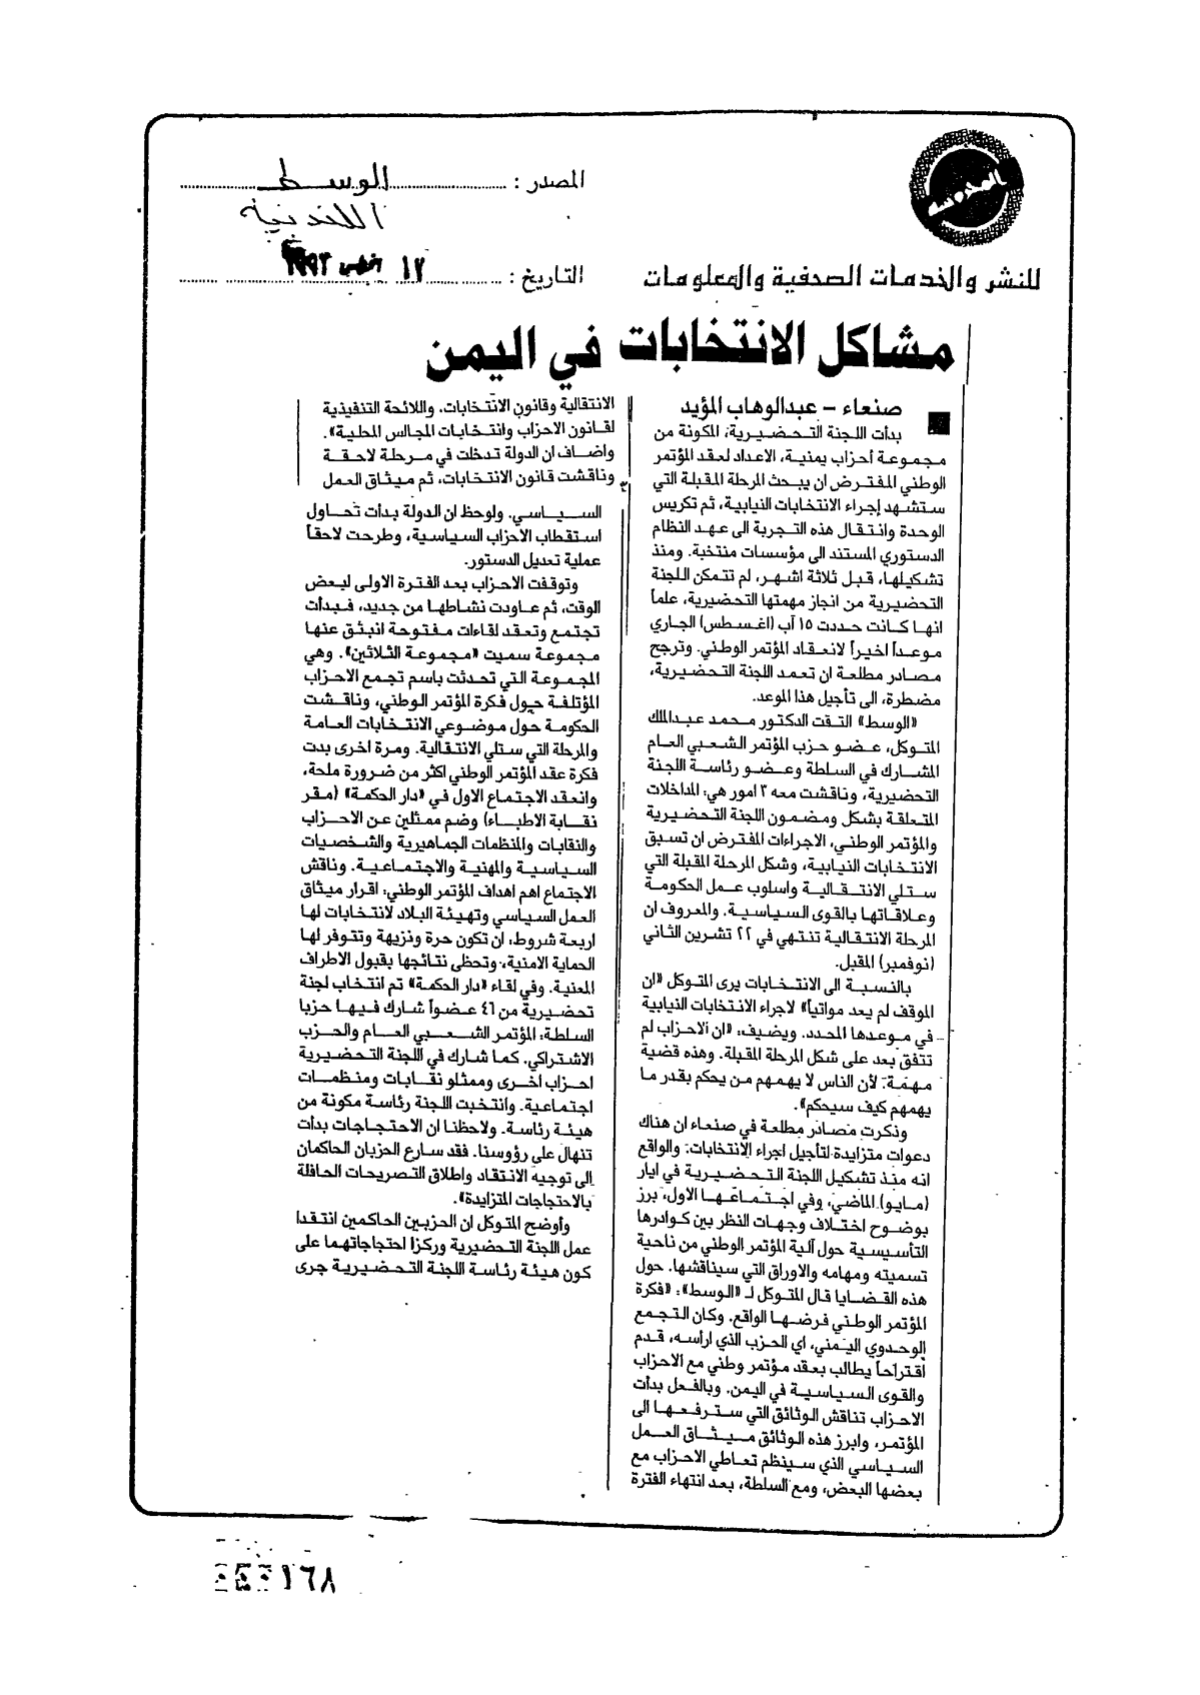 المحروسة
المصدر : الوسط
اللندنية
للنشر والخدمات الصحفية والمعلومات
التاريخ : ١٢
مشاكل الانتخابات في اليمن
صنعاء – عبدالوهاب المؤيد
بدأت اللجنة التحضيرية، المكونة من
مجموعة أحزاب يمنية، الاعداد لعقد المؤتمر
الوطني المفترض ان يبحث المرحلة المقبلة التي
ستشهد إجراء الانتخابات النيابية، ثم تكريس
الوحدة وانتقال هذه التجربة الى عهد النظام
الدستوري المستند الى مؤسسات منتخبة. ومنذ
تشكيلها، قبل ثلاثة اشهر، لم تتمكن اللجنة
التحضيرية من انجاز مهمتها التحضيرية، علماً
انها كانت حددت ١٥ آب (اغسطس) الجاري
موعداً اخيراً لانعقاد المؤتمر الوطني. وترجح
مصادر مطلعة ان تعمد اللجنة التحضيرية،
مضطرة، الى تأجيل هذا الموعد.
«الوسط» التقت الدكتور محمد عبدالملك
المتوكل، عضو حزب المؤتمر الشعبي العام
المشارك في السلطة وعضو رئاسة اللجنة
التحضيرية، وناقشت معه ٣ امور هي: المداخلات
المتعلقة بشكل ومضمون اللجنة التحضيرية
والمؤتمر الوطني، الاجراءات المفترض ان تسبق
الانتخابات النيابية، وشكل المرحلة المقبلة التي
ستلي الانتقالية واسلوب عمل الحكومة
وعلاقاتها بالقوى السياسية. والمعروف ان
المرحلة الانتقالية تنتهي في ٢٢ تشرين الثاني
(نوفمبر) المقبل.
بالنسبة الى الانتخابات يرى المتوكل «ان
الموقف لم يعد مواتياً» لاجراء الانتخابات النيابية
في موعدها المحدد. ويضيف: «ان الاحزاب لم
تتفق بعد على شكل المرحلة المقبلة. وهذه قضية
مهمة: لأن الناس لا يهمهم من يحكم بقدر ما
يهمهم كيف سيحكم».
وذكرت مصادر مطلعة في صنعاء ان هناك
دعوات متزايدة لتأجيل اجراء الانتخابات: والواقع
انه منذ تشكيل اللجنة التحضيرية في ايار
(مايو) الماضي، وفي اجتماعها الاول، برز
بوضوح اختلاف وجهات النظر بين كوادرها
التأسيسية حول آلية المؤتمر الوطني من ناحية
تسميته ومهامه والاوراق التي سيناقشها. حول
هذه القضايا قال المتوكل لـ «الوسط»: «فكرة
المؤتمر الوطني فرضها الواقع. وكان التجمع
الوحدوي اليمني، اي الحزب الذي ارأسه، قدم
اقتراحاً يطالب بعقد مؤتمر وطني مع الاحزاب
والقوى السياسية في اليمن. وبالفعل بدأت
الاحزاب تناقش الوثائق التي سترفعها الى
المؤتمر، وابرز هذه الوثائق ميثاق العمل
السياسي الذي سينظم تعاطي الاحزاب مع
بعضها البعض، ومع السلطة، بعد انتهاء الفترة
الانتقالية وقانون الانتخابات، واللائحة التنفيذية
لقانون الاحزاب وانتخابات المجالس المحلية».
واضاف ان الدولة تدخلت في مرحلة لاحقة
وناقشت قانون الانتخابات، ثم ميثاق العمل
السياسي. ولوحظ ان الدولة بدأت تحاول
استقطاب الاحزاب السياسية، وطرحت لاحقاً
عملية تعديل الدستور.
وتوقفت الاحزاب بعد الفترة الاولى لبعض
الوقت، ثم عاودت نشاطها من جديد، فبدأت
تجتمع وتعقد لقاءات مفتوحة انبثق عنها
مجموعة سميت «مجموعة الثلاثين». وهي
المجموعة التي تحدثت باسم تجمع الاحزاب
المؤتلفة حول فكرة المؤتمر الوطني، وناقشت
الحكومة حول موضوعي الانتخابات العامة
والمرحلة التي ستلي الانتقالية. ومرة اخرى بدت
فكرة عقد المؤتمر الوطني اكثر من ضرورة ملحة،
وانعقد الاجتماع الاول في «دار الحكمة» (مقر
نقابة الاطباء) وضم ممثلين عن الاحزاب
والنقابات والمنظمات الجماهيرية والشخصيات
السياسية والمهنية والاجتماعية. وناقش
الاجتماع اهم اهداف المؤتمر الوطني: اقرار ميثاق
العمل السياسي وتهيئة البلاد لانتخابات لها
اربعة شروط، ان تكون حرة ونزيهة وتتوفر لها
الحماية الامنية، وتحظى نتائجها بقبول الاطراف
المعنية. وفي لقاء «دار الحكمة» تم انتخاب لجنة
تحضيرية من ٤٦ عضواً شارك فيها حزبا
السلطة: المؤتمر الشعبي العام والحزب
الاشتراكي. كما شارك في اللجنة التحضيرية
احزاب اخرى وممثلو نقابات ومنظمات
اجتماعية. وانتخبت اللجنة رئاسة مكونة من
هيئة رئاسة. ولاحظنا ان الاحتجاجات بدأت
تنهال على رؤوسنا. فقد سارع الحزبان الحاكمان
الى توجيه الانتقاد واطلاق التصريحات الحافلة
بالاحتجاجات المتزايدة».
وأوضح المتوكل ان الحزبين الحاكمين انتقدا
عمل اللجنة التحضيرية وركزا احتجاجاتهما على
كون هيئة رئاسة اللجنة التحضيرية جرى
١٦٨